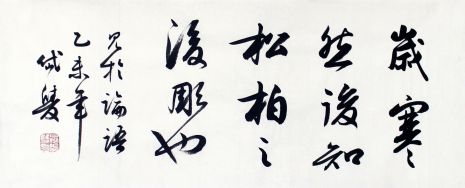 歲寒
然後知
松柏之
後彫也
見於論語
乙未年